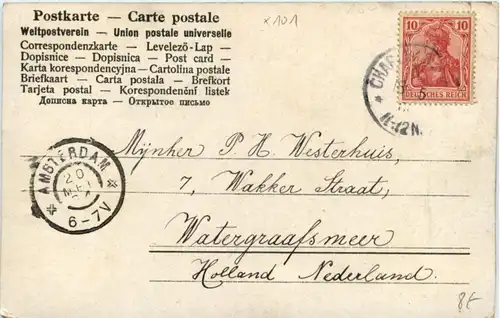 Postkarte — Carte postale
Weltpostverein — Union postale universelle
Correspondenzkarte — Levelező-Lap —
Dopisnice — Dopisnica — Post card —
Karta korespondencyjna — Cartolina postale
Briefkaart — Carta postala — Brefkort
Tarjeta postal — Korespondenční listek
Дописна карта — Открытое письмо
x101
10 10
DEUTSCHES REICH
5
11-12N.
AMSTERDAM
20
6-7V
Mijnher P. H. Westerhuis,
7, Wakker Straat,
Watergraafsmeer
Holland Nederland.